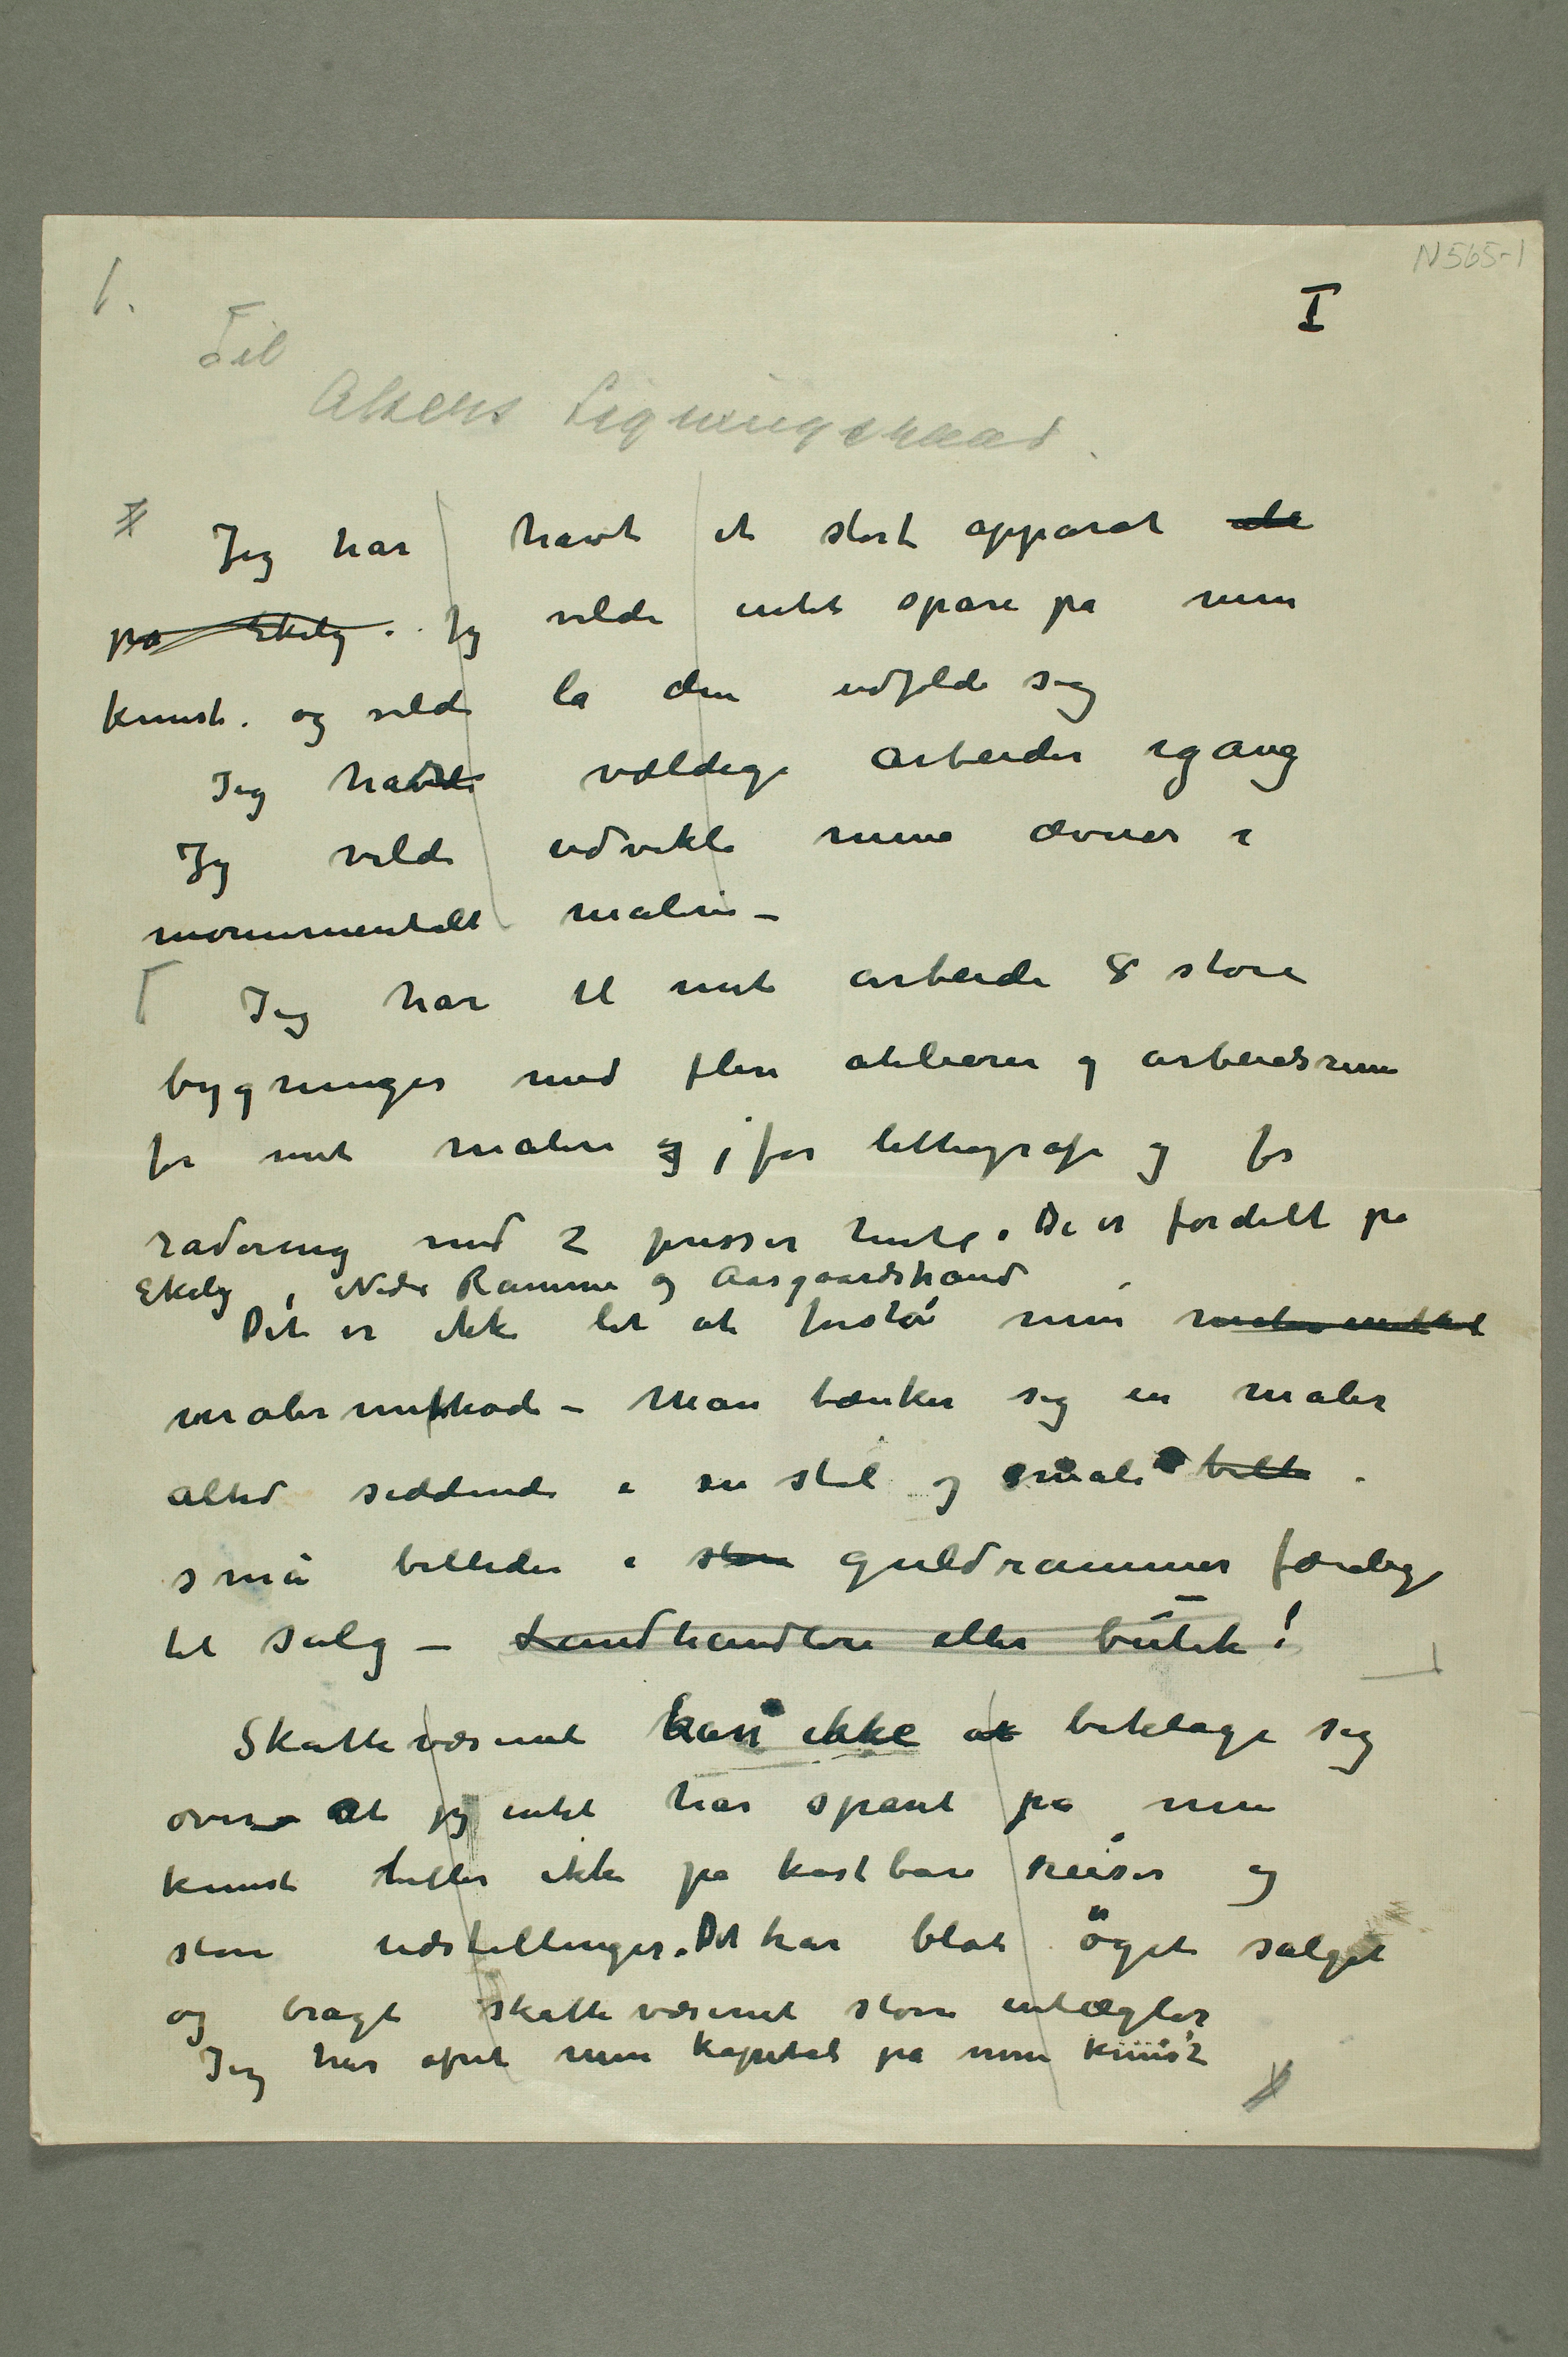 N 565-1
1.
I
Til
Akers Ligningsraad.
Jeg har havt et stort apparat ute
på Ekely. Jeg vilde intet spare på min
kunst. og vilde la den udfolde sig
Jeg havde vældige arbeider igang
Jeg vilde udvikle mine ævner i
monumentalt maleri –
Jeg har til mit arbeide 8 store
bygninger med flere atelierer og arbeidsrum
for mit maleri og, for lithografi og for
radering med 2 presser hertil. De er fordelt på
Ekely, Nedre Ramme og Aasgaardstrand
Det er ikke let at forstå min
malermethode – Man tænker sig en maler
altid siddende i en stol og male
små billeder i store guldrammer færdige
til salg – Landhandlere eller butik!
Skattevæsenet kan ikke at beklage sig
over at jeg intet har sparet på min
kunst heller ikke på kostbare reiser og
store udstillinger. Det har blot öget salget
og bragt skattevæsenet store indtægter
Jeg har ofret min kapital på min kunst